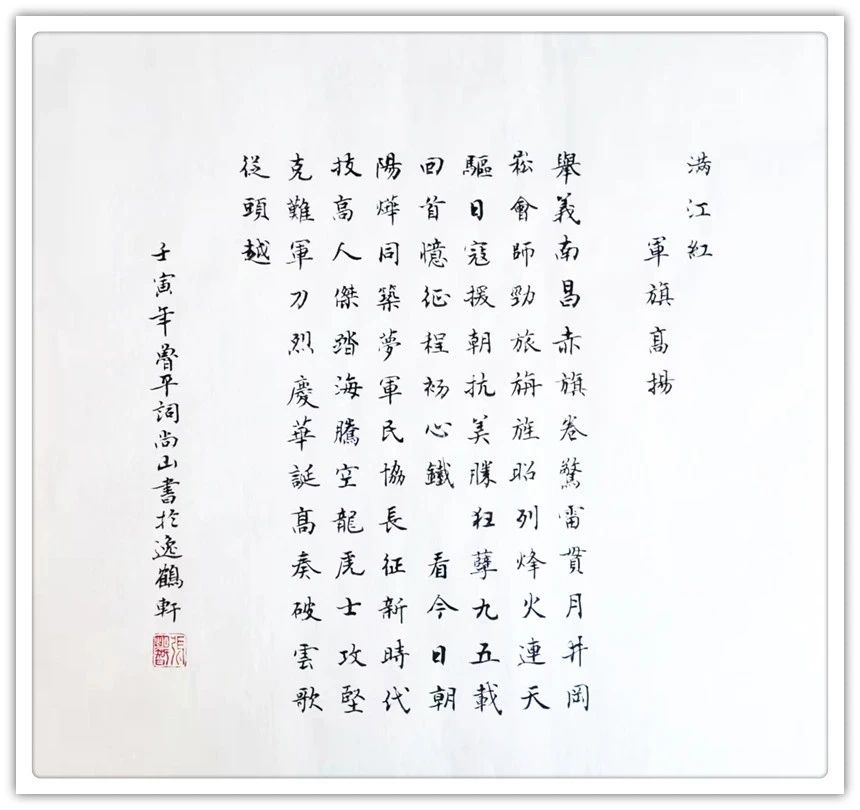 满江紅
軍旗高揚
舉義南昌赤旗卷驚雷貫月井岡
崧會師勁旅旃旌昭列烽火連天
驅日寇援朝抗美勝狂孽九五載
回首憶征程初心鐵 看今日朝
陽燁同築夢軍民協長征新時代
技高人傑踏海騰空龍虎士攻堅
克難軍刀烈慶華誕高奏破雲歌
從頭越
壬寅年魯平詞尚山書於逸鶴軒